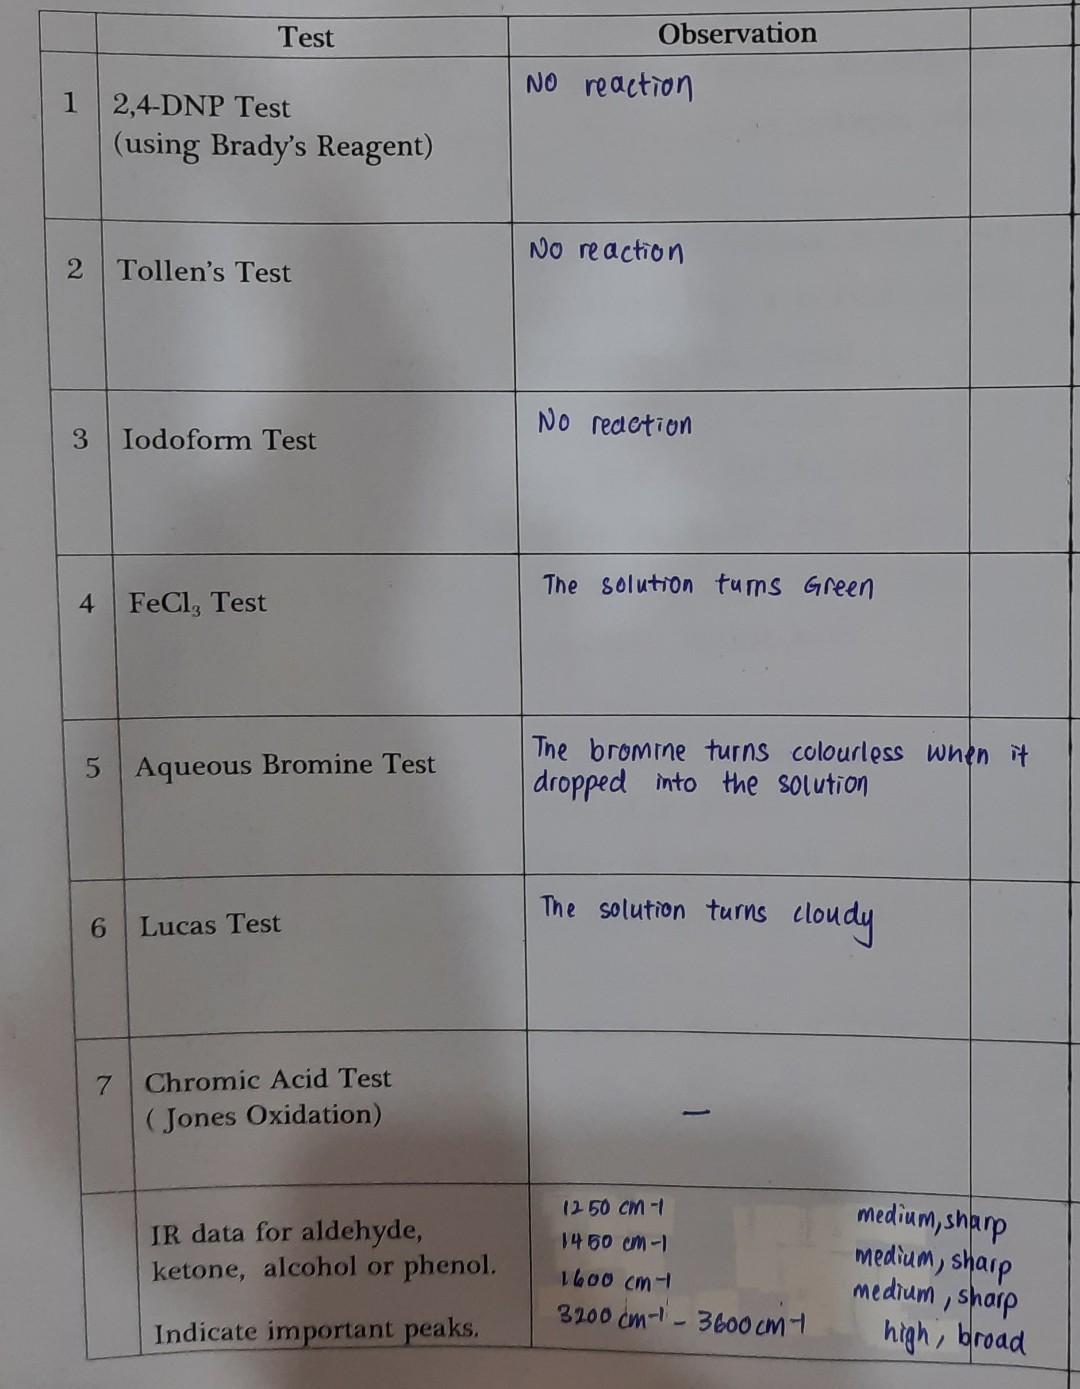 Test Observation
1 2,4-DNP Test
(using Brady's Reagent)
No reaction
2 Tollen's Test
No reaction
3 Iodoform Test
No reaction
4 FeCl₃ Test
The solution turns Green
5 Aqueous Bromine Test
The bromine turns colourless when it
dropped into the solution
6 Lucas Test
The solution turns cloudy
7 Chromic Acid Test
( Jones Oxidation)
–
IR data for aldehyde,
ketone, alcohol or phenol.
Indicate important peaks.
1250 cm-1 medium, sharp
1450 cm-1 medium, sharp
1600 cm-1 medium, sharp
3200 cm-1 - 3600 cm-1 high, broad